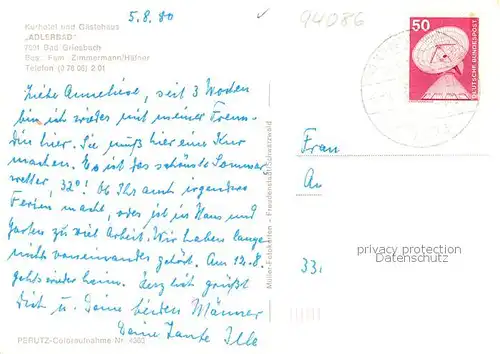 5.8.80
94086
Kurhotel und Gästehaus
"ADLERBAD"
7601 Bad Griesbach
Bes. Fam. Zimmermann/Häfner
Telefon (0 78 06) 2 01
50
DEUTSCHE BUNDESPOST
Liebe Anneliese, seit 3 Wochen
bin ich wieder mit meiner Freun-
din hier. Sie muß hier eine Kur
machen. Es ist das schönste Sommer
wetter, 32°! Ob Ihr auch irgendwo
Ferien macht, oder ist in Haus und
Garten zu viel Arbeit. Wir haben lange
nichts voneinander gehört. Am 12.8.
geht's wieder heim. Herzlich grüßt
Dich u. Deine beiden Männer
Deine Tante Ille
Müller-Fotokarten - Freudenstadt/Schwarzwald
Frau
An
privacy protection
Datenschutz
33
PERUTZ-Coloraufnahme Nr. 4363